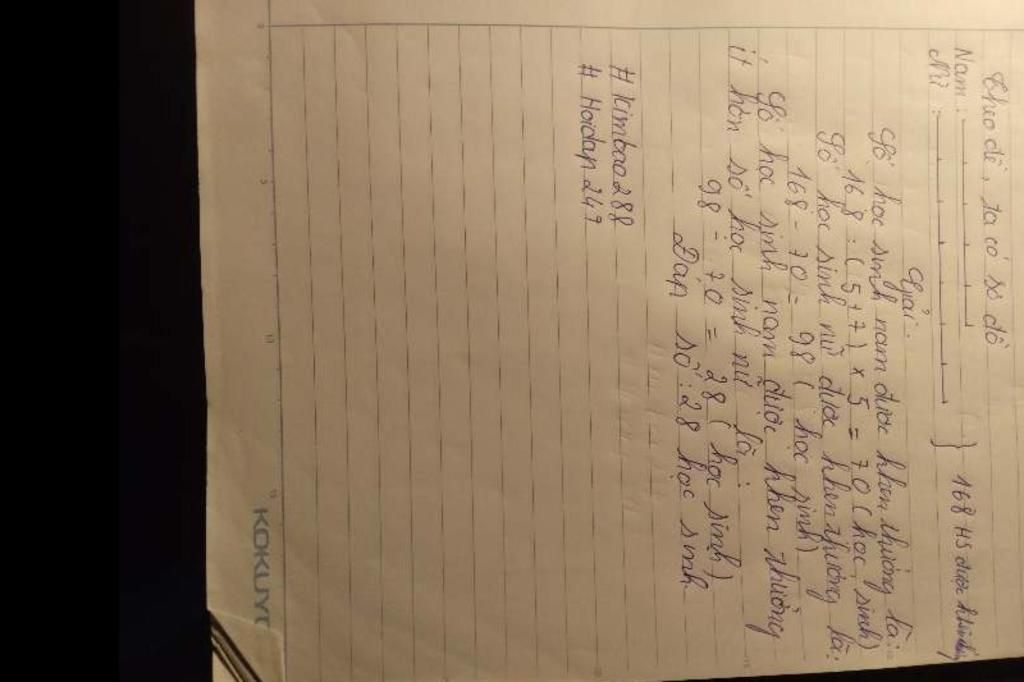 Theo đề, ta có sơ đồ
Nam :
Nữ : } 168 HS được
Giải :
Số học sinh nam được khen thưởng là :
168 : ( 5 + 7 ) x 5 = 70 ( học sinh )
Số học sinh nữ được khen thưởng là :
168 - 70 = 98 ( học sinh )
Số học sinh nam được khen thưởng
ít hơn số học sinh nữ là :
98 - 70 = 28 ( học sinh )
Đáp số : 28 học sinh
# kimbao288
# Hoidap247
KOKUYO